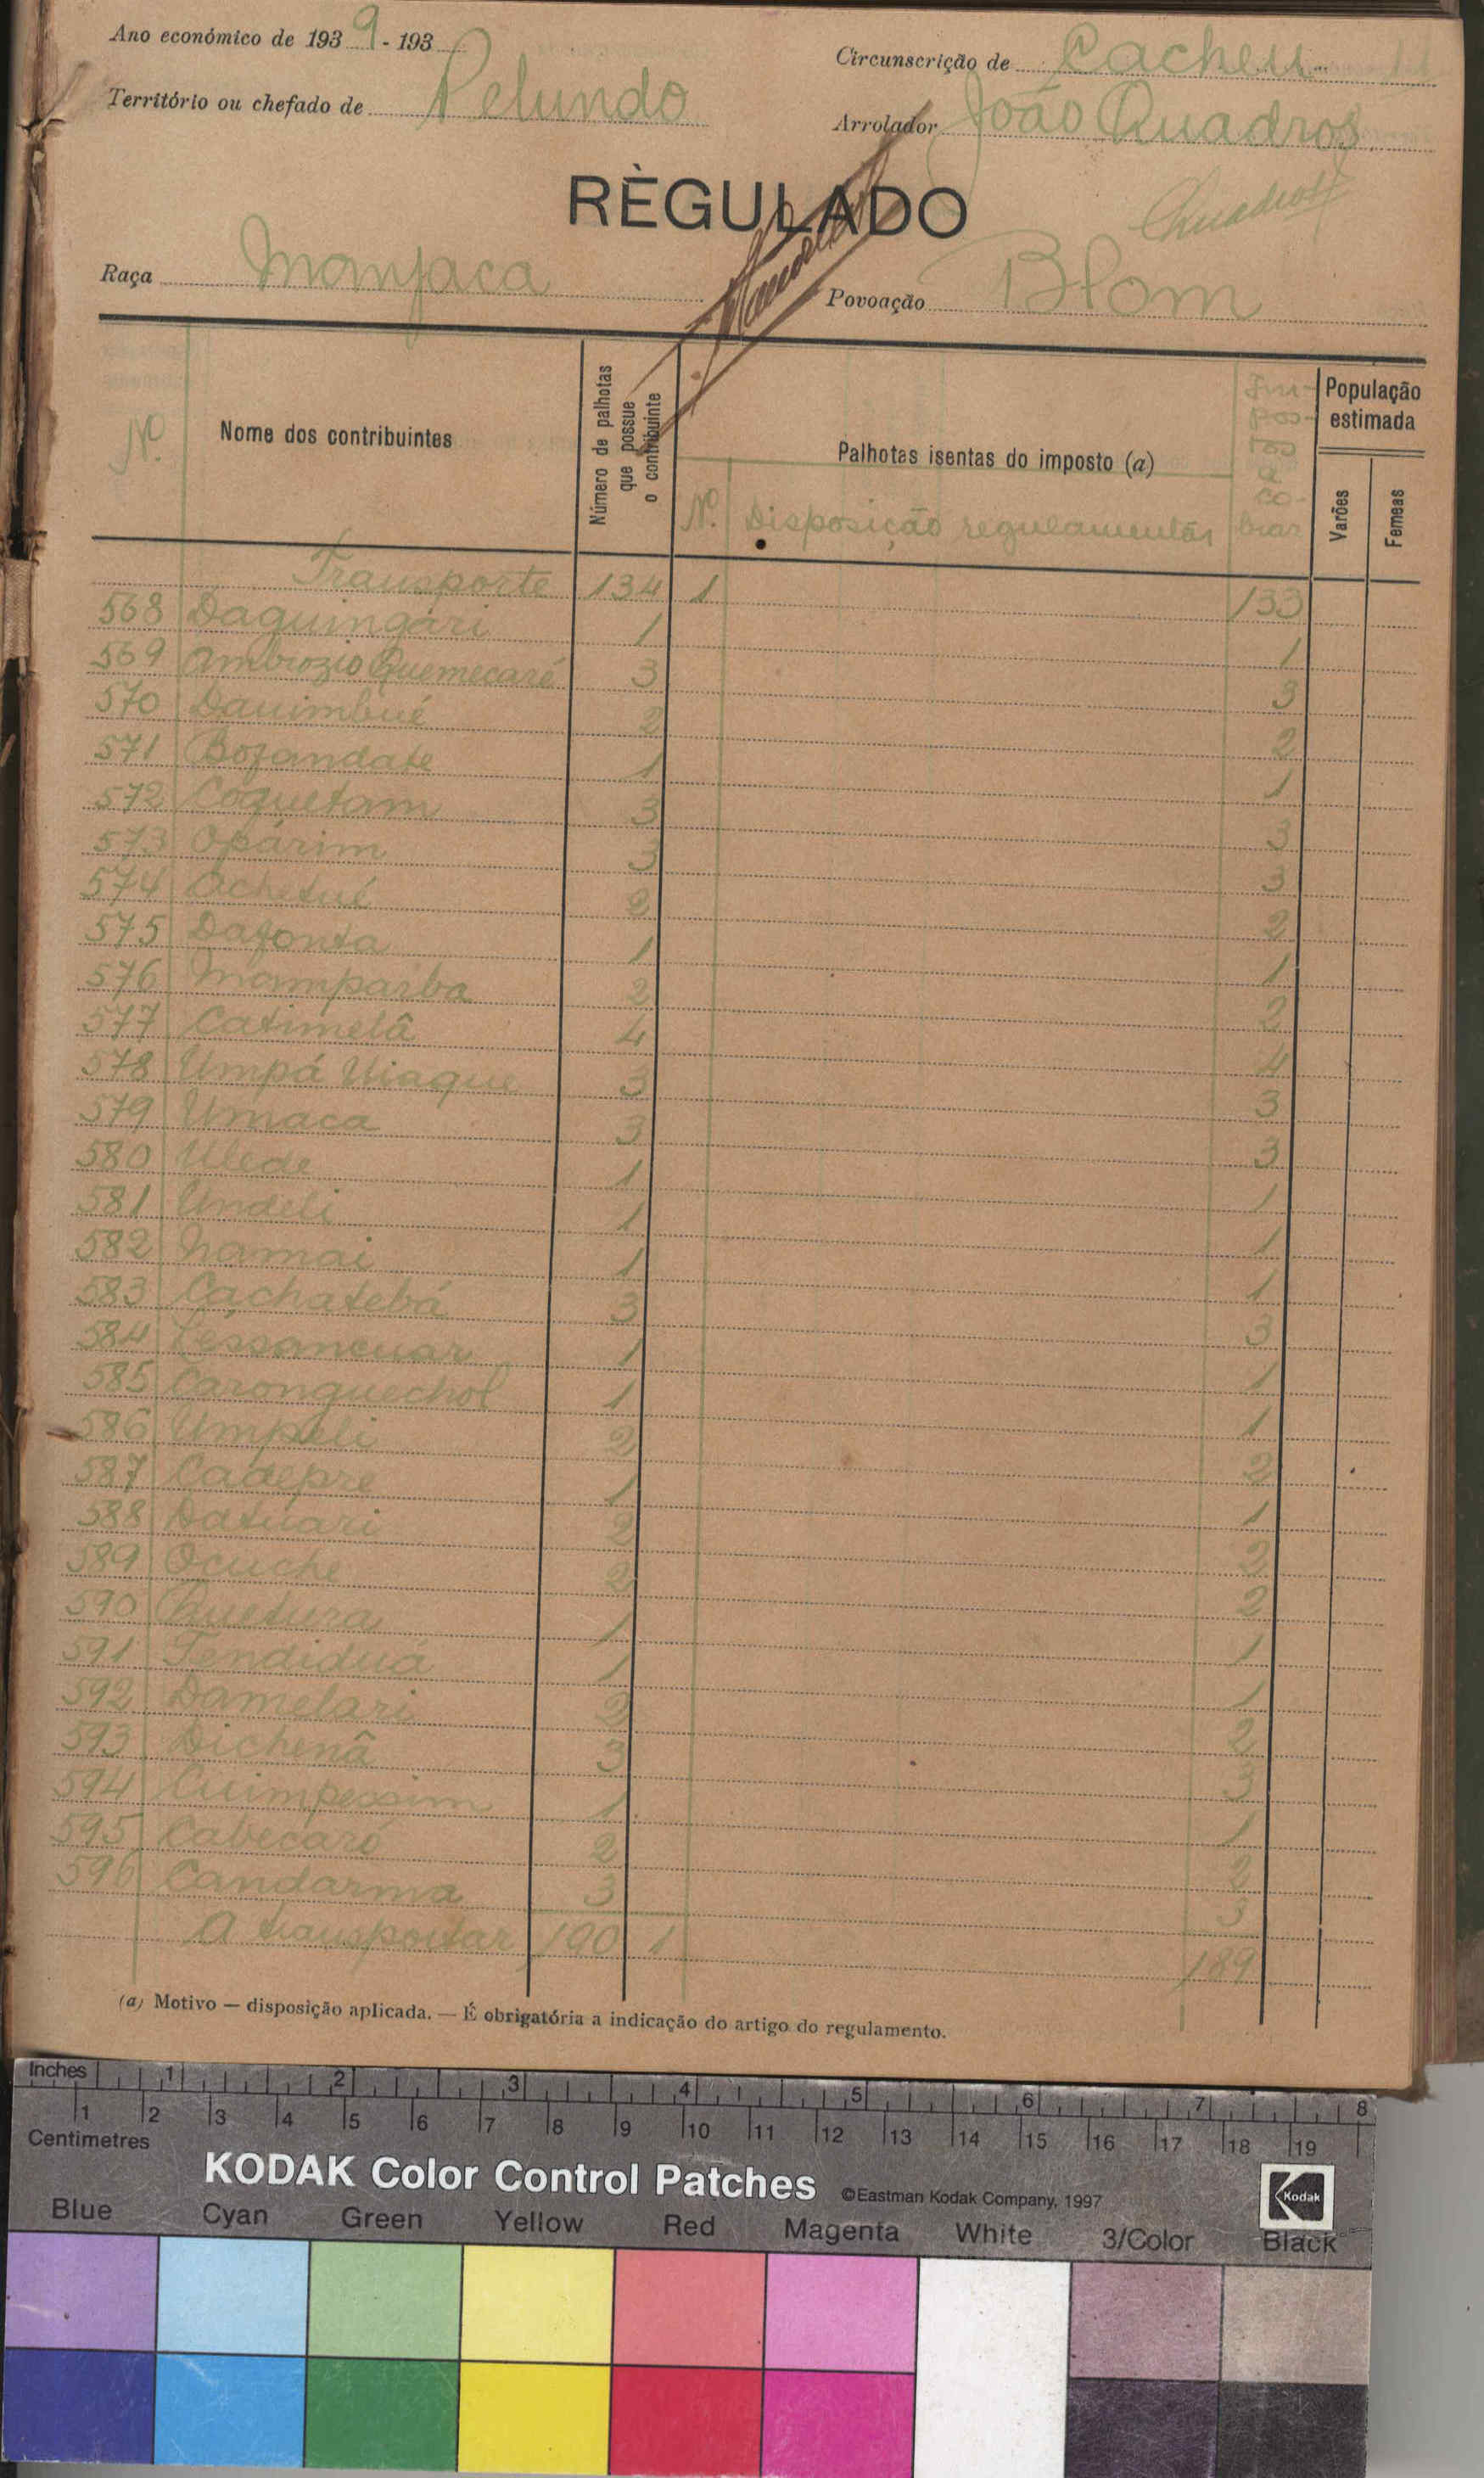 Ano económico de 1939-193
Circunscrição de Cacheu
Território ou chefado de Pelundo
Arrolador João Quadros
RÈGULADO
Quadros
Raça Manjaca
Povoação Blom
Nº
Nome dos contribuintes
Número de palhotas que possue o contribuinte
Palhotas isentas do imposto (a)
Nº. Disposição regulamentar
Impostos a cobrar
População estimada
Varões
Femeas
Transporte 134 1 133
568 Daquingári 1 1
569 Ambrozio Quemecaré 3 3
570 Dauimbué 2 2
571 Bofandate 1 1
572 Coquetam 3 3
573 Opárim 3 3
574 Achetué 2 2
575 Dafonta 1 1
576 Mamparba 2 2
577 Catimelâ 4 4
578 Umpá Uiaque 3 3
579 Umaca 3 3
580 Ulede 1 1
581 Undeli 1 1
582 Namai 1 1
583 Cachatebá 3 3
584 Lessancuar 1 1
585 Caronguechol 1 1
586 Umpeli 2 2
587 Cadepre 1 1
588 Datuari 2 2
589 Ocuche 2 2
590 Quetura 1 1
591 Tendiduá 1 1
592 Damelari 2 2
593 Dichenâ 3 3
594 Cuimpessim 1 1
595 Cabecaró 2 2
596 Candarma 3 3
A transportar 190 1 189
(a) Motivo — disposição aplicada. — É obrigatória a indicação do artigo do regulamento.
Inches 1 2 3 4 5 6 7 8
1 2 3 4 5 6 7 8 9 10 11 12 13 14 15 16 17 18 19
Centimetres
KODAK Color Control Patches ©Eastman Kodak Company, 1997 Kodak
Blue Cyan Green Yellow Red Magenta White 3/Color Black